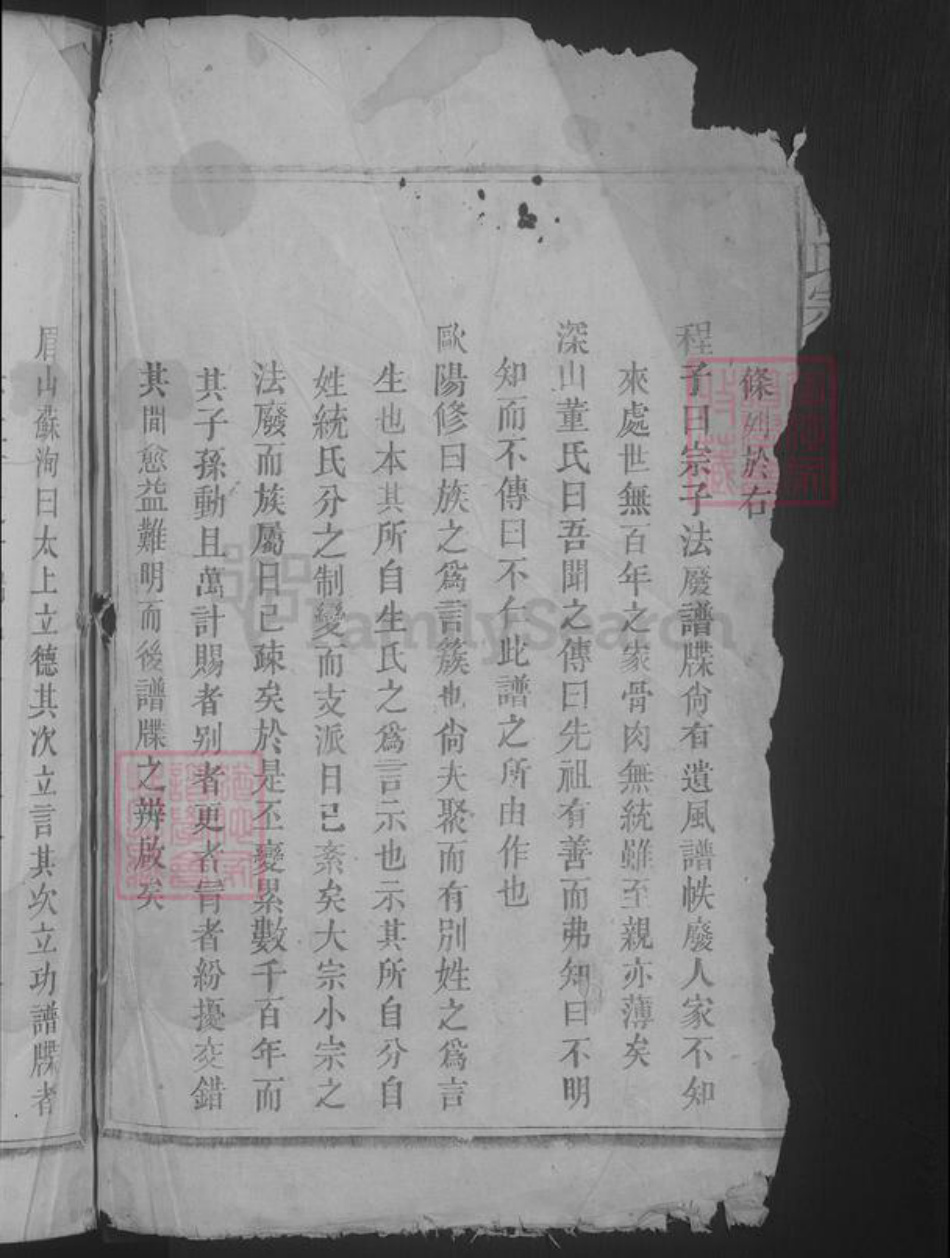 條姓於右
程子曰宗子法廢譜牒尙有遺風譜帙廢人家不知
來處世無百年之家骨肉無統雖至親亦薄矣
深山董氏曰吾聞之傳曰先祖有善而弗知曰不明
知而不傳曰不仁此譜之所由作也
歐陽修曰族之爲言簇也尙夫聚而有別姓之爲言
生也本其所自生氏之爲言示也示其所自分自
姓統氏分之制變而支派日已紊矣大宗小宗之
法廢而族屬日已疎矣於是丕變累數千百年而
其子孫動且萬計賜者别者更者冐者紛擾交錯
其間愈益難明而後譜牒之辨啟矣
眉山蘇洵曰太上立德其次立言其次立功譜牒者
FamilySearch